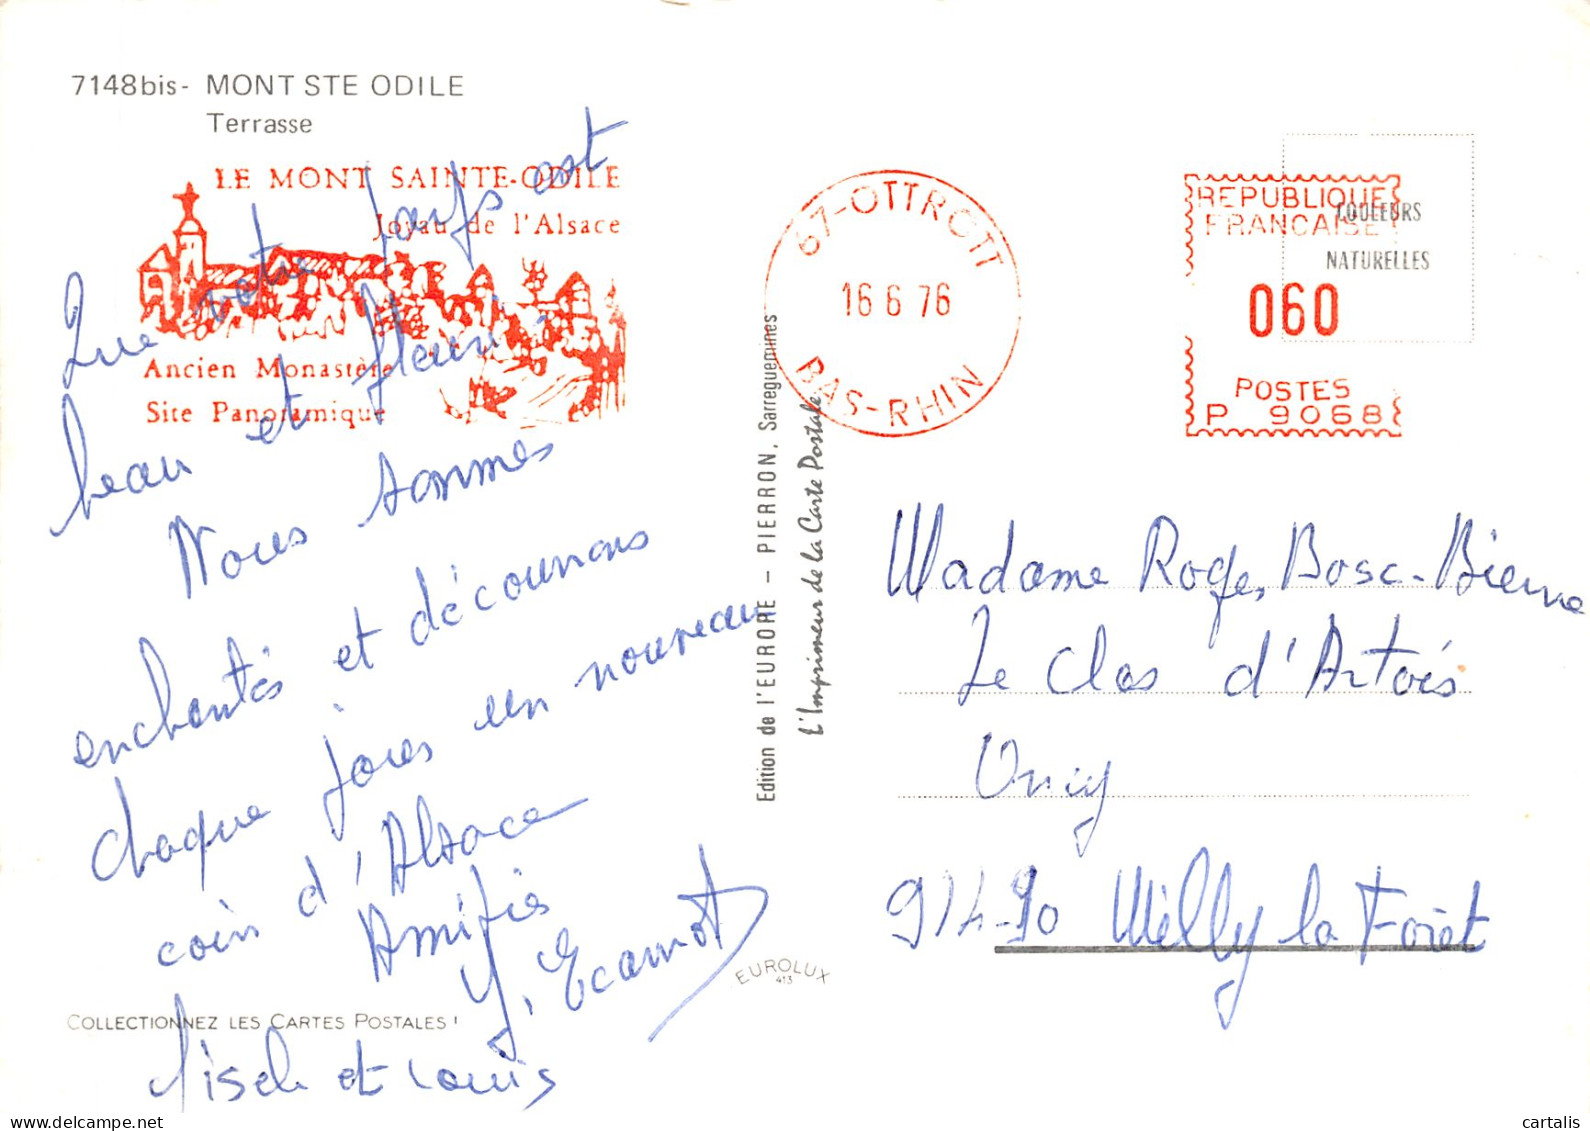 7148bis- MONT STE ODILE
Terrasse
LE MONT SAINTE-ODILE
Joyau de l'Alsace
Ancien Monastère
Site Panoramique
Que votre pays est
beau et fleuri
Nous sommes
enchantés et découvrons
chaque jours un nouveau
coin d'Alsace
Amitiés
et Louis
COLLECTIONNEZ LES CARTES POSTALES !
Edition de l'EUROPE - PIERRON, Sarreguemines
L'Imprimeur de la Carte Postale
EUROLUX
413
67-OTTROTT
16 6 76
BAS-RHIN
REPUBLIQUE
FRANCAISE
060
POSTES
P 9068
COULEURS
NATURELLES
Madame Roger Bosc-Bienne
Le Clos d'Artois
Oncy
91490 Milly la Forêt
cartalis